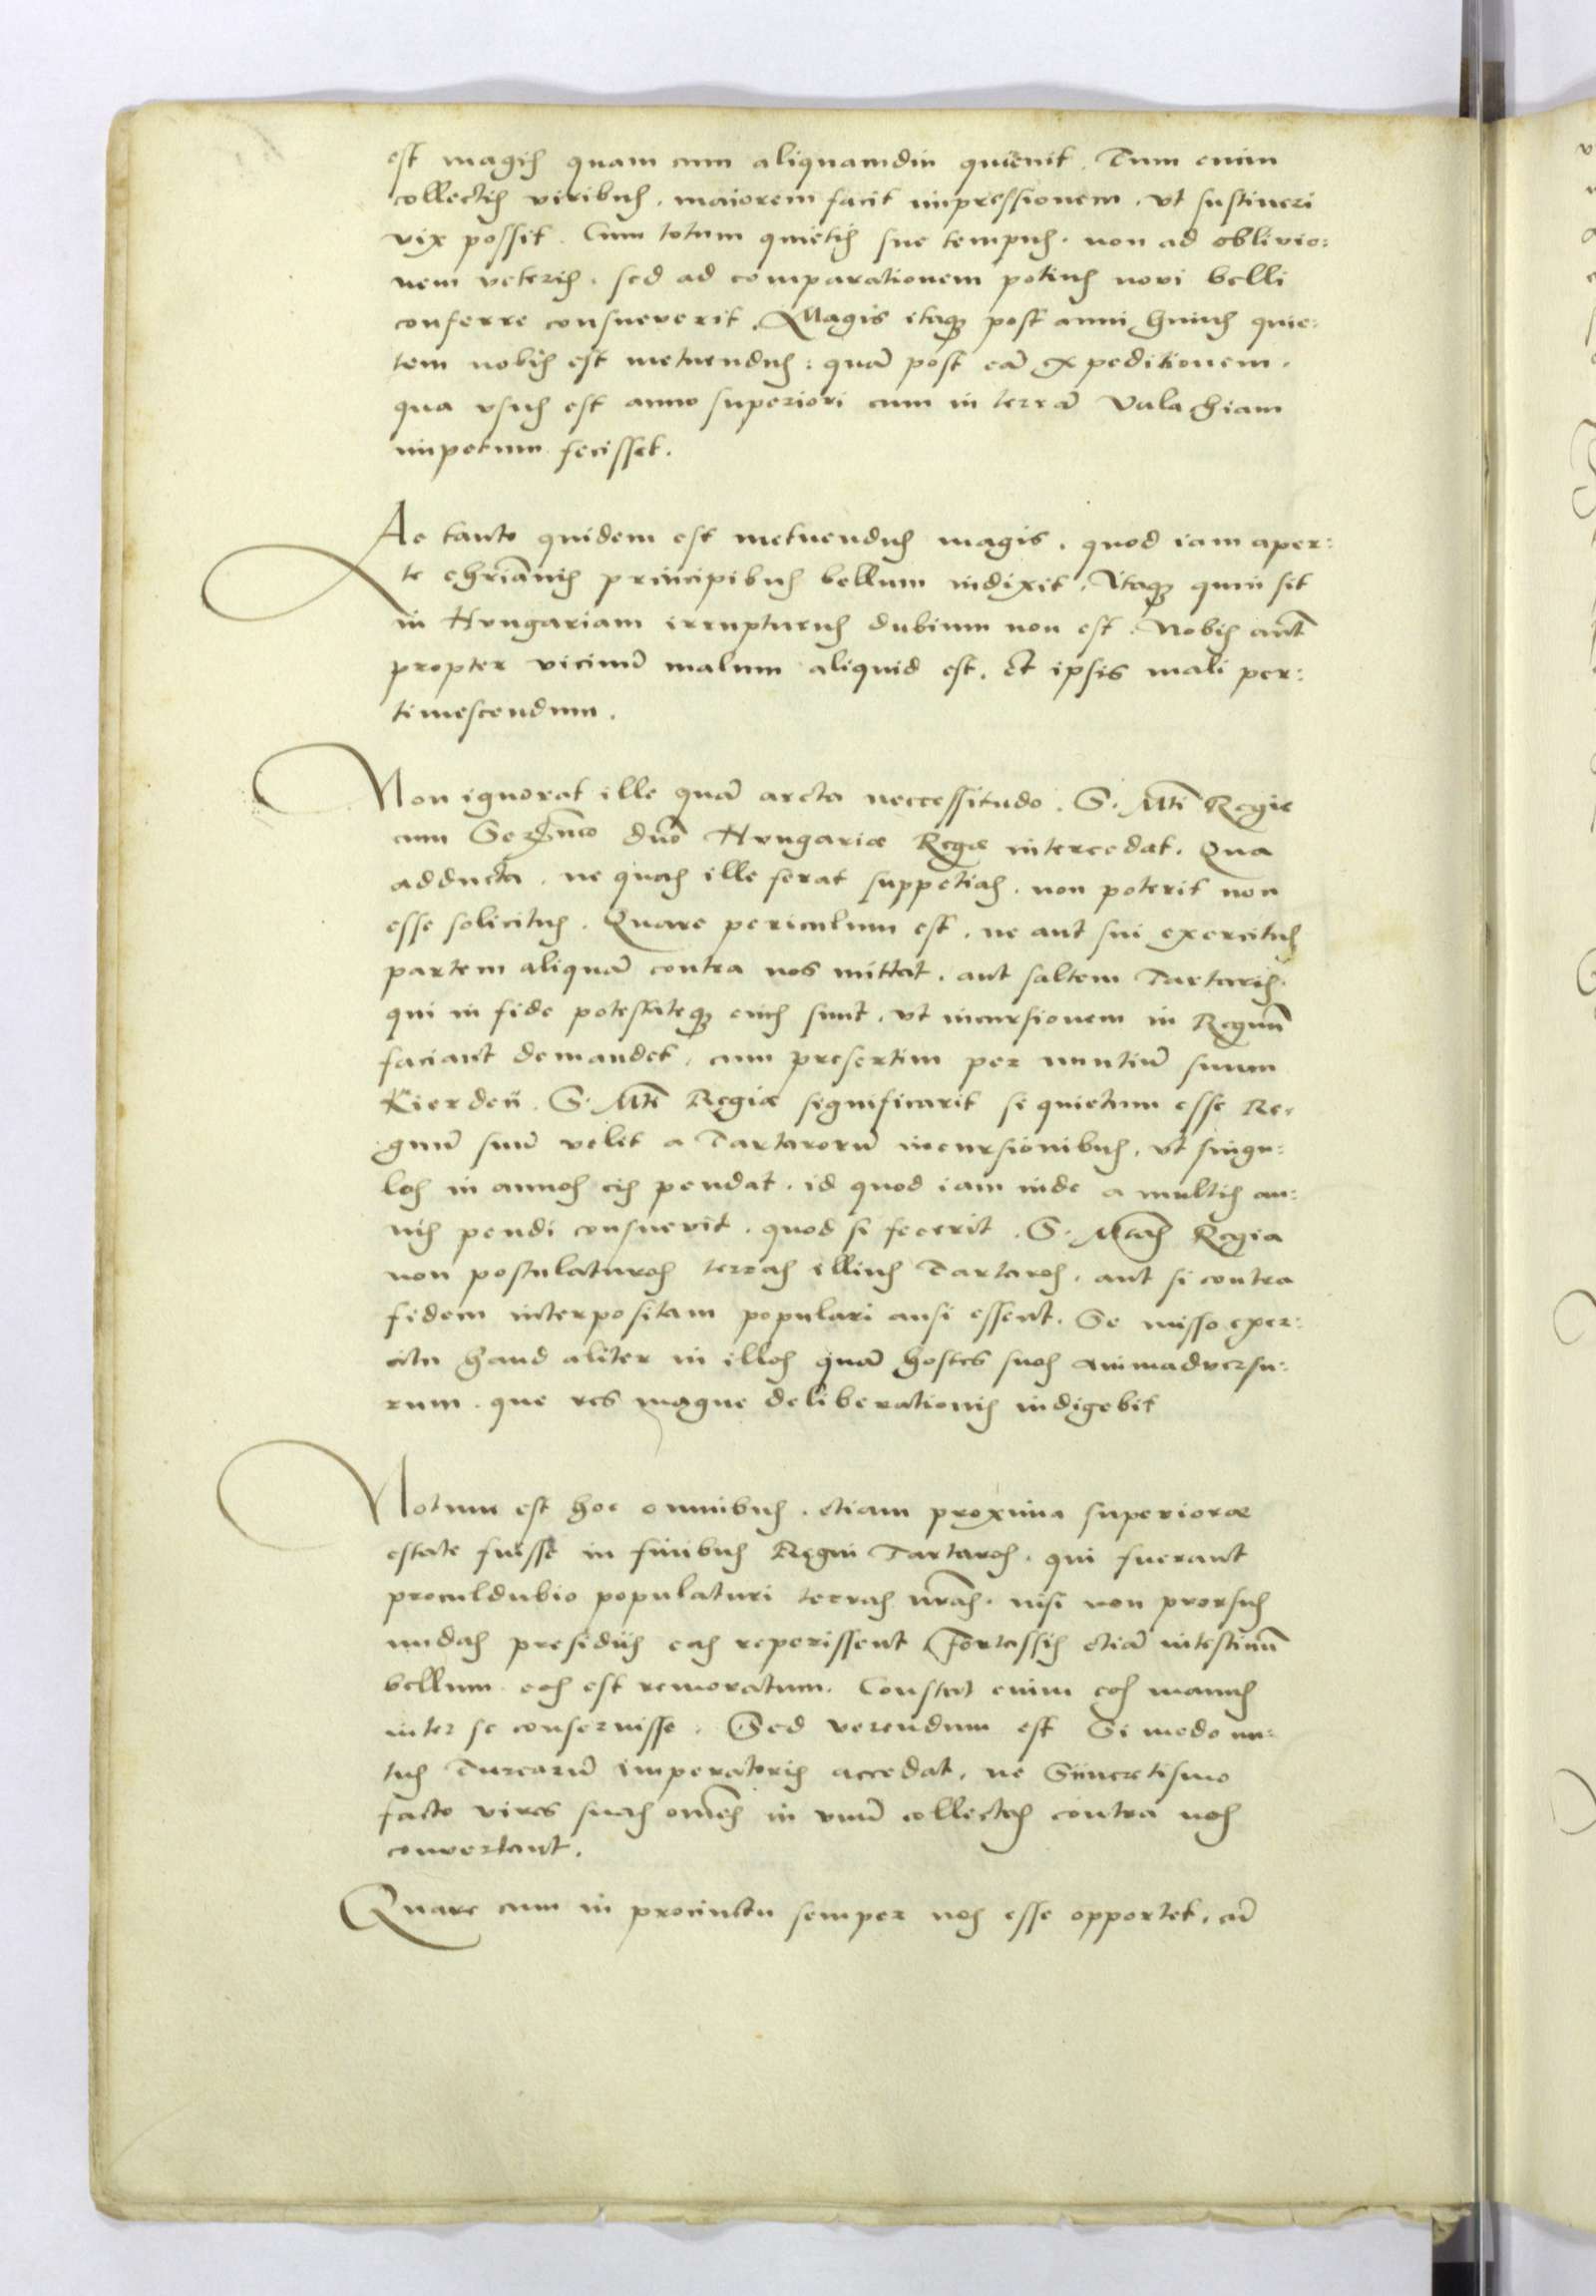 est magis quam cum aliquamdiu quieuit. Tum enim
collectis viribus, maiorem facit impressionem, vt sustineri
vix possit. Cum totum quietis sue tempus, non ad oblivio:
nem veteris, sed ad comparationem potius novi belli
conferre consueverit. Magis itaq3 post anni huius quie:
tem nobis est metuendus: quã post eã expeditionem,
qua vsus est anno superiori cum in terrã Valachiam
impetum fecisset.
Ac tanto quidem est metuendus magis, quod iam aper:
te chrianis principibus bellum indixit, Itaq3 quin sit
in Hvngariam irrupturus dubium non est. Nobis aut
propter vicinũ malum aliquid est, et ipsis mali per:
timescendum.
Non ignorat ille quã arcta neccessitudo. S. Mti Regie
cum Sermo duo Hvngariæ Rege intercedat. Qua
adducta, ne quas ille ferat suppetias, non poterit non
esse solicitus. Quare periculum est, ne aut sui exercitus
partem aliquã contra nos mittat, aut saltem Tartaris,
qui in fide potestateq3 eius sunt, vt incursionem in Regnũ
faciant demandet, cum presertim per nuntiũ suum
Kierdeii. S. Mti Regiæ significarit si quietum esse Re:
gnũ suũ velit a Tartarorũ incursionibus, vt singu:
los in annos eis pendat, id quod iam inde a multis an:
nis pendi consuevit, quod si fecerit. S. Mtas Regia
non postulaturos terras illius Tartaros, aut si contra
fidem interpositam populari ausi essent, Se misso exer:
citu haud aliter in illos quã hostes suos animadversu:
rum. que res magne deliberationis indigebit
Notum est hoc omnibus, etiam proxima superioræ
estate fuisse in finibus Regni Tartaros, qui fuerant
proculdubio populaturi terras nras, nisi non prorsus
nudas presidiis eas reperissent Fortassis etiã intestinũ
bellum eos est remoratum. Constat enim eos manus
inter se conseruisse. Sed verendum est Si modo nu:
tus Turcarũ imperatoris accedat, ne Sincretismo
facto vires suas omes in vnũ collectas contra nos
convertant.
Quare cum in procinctu semper nos esse opportet, cũ